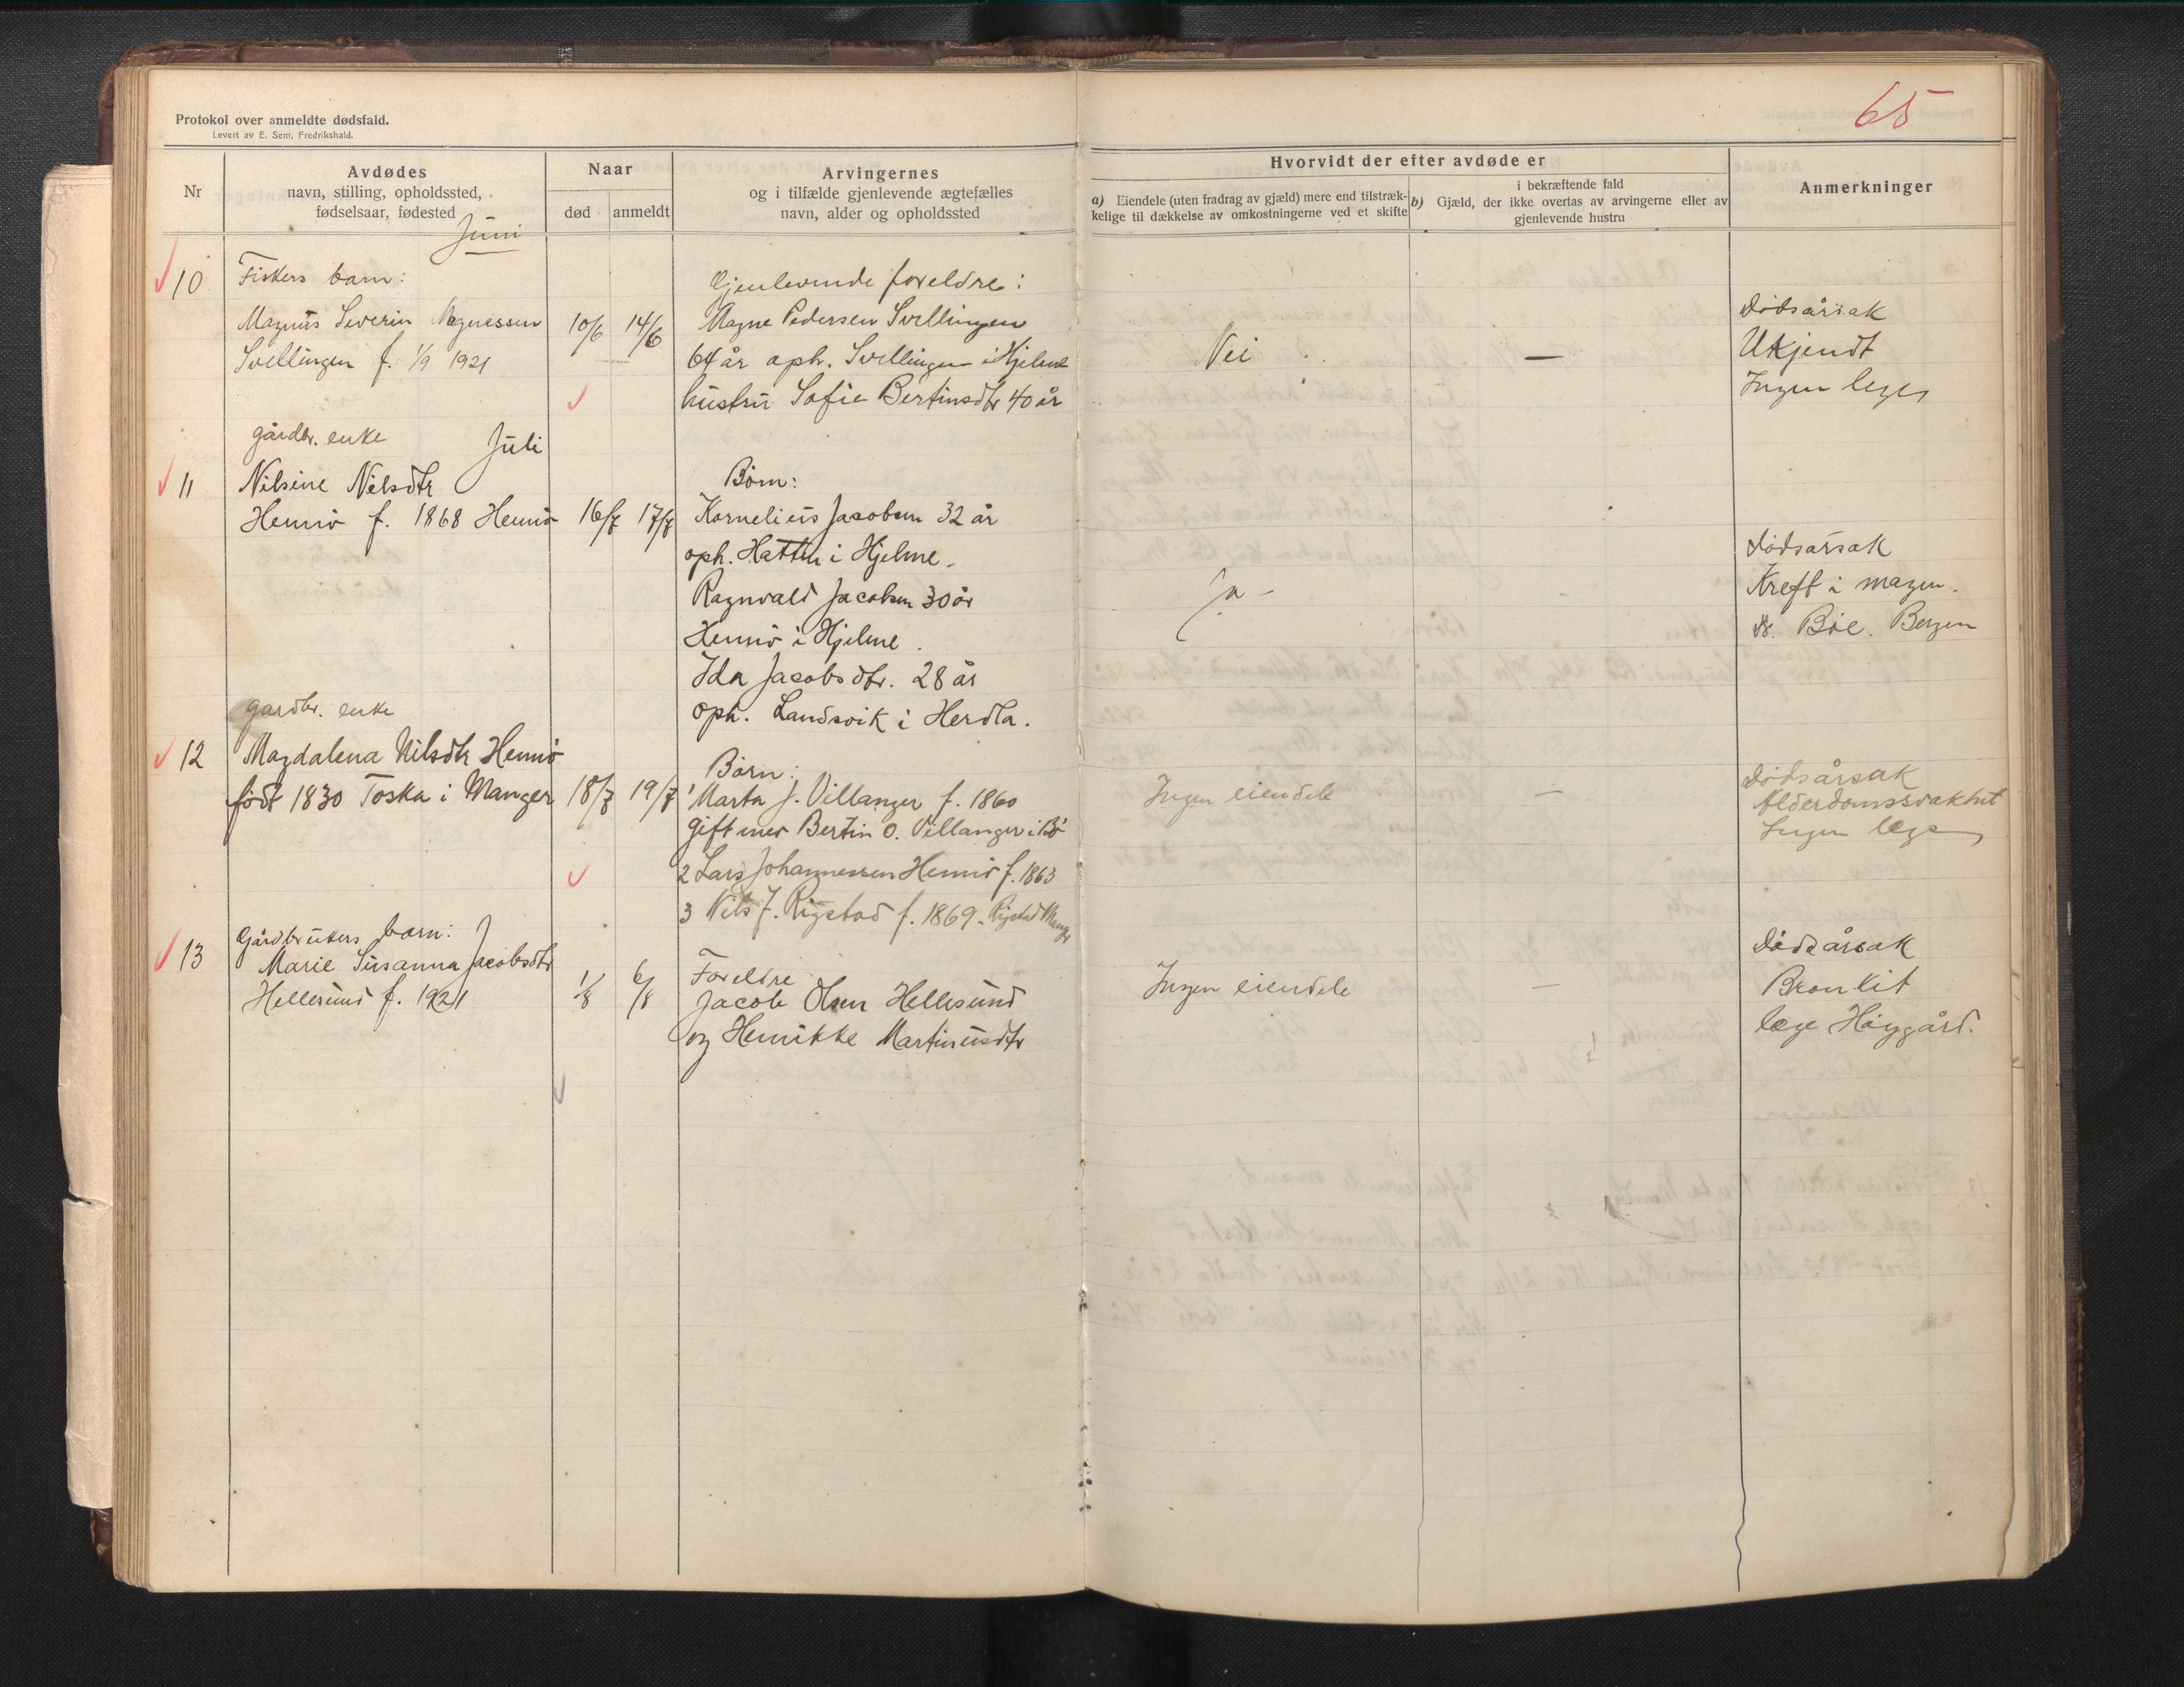 Protokol over anmeldte dødsfald.
Levert av E. Sem, Fredrikshald.
65
Nr
Avdødes
navn, stilling, opholdssted,
fødselsaar, fødested
Naar
død
anmeldt
Arvingernes
og i tilfælde gjenlevende ægtefælles
navn, alder og opholdssted
Hvorvidt der efter avdøde er
a) Eiendele (uten fradrag av gjæld) mere end tilstræk-
kelige til dækkelse av omkostningerne ved et skifte
i bekræftende fald
b) Gjæld, der ikke overtas av arvingerne eller av
gjenlevende hustru
Anmerkninger
Juni
10
Fiskers barn:
Magnus Severin Magnessen
Svellingen f. 1/9 1921
10/6 14/6
Gjenlevende foreldre:
Magne Pedersen Svellingen
64 år oph. Svellingen i Hjelme
hustru Sofie Bertinsdtr 40 år
Nei
—
Dødsårsak
Ukjendt
Ingen lege
Juli
11
gårdbr. enke
Nilsine Nilsdtr
Hennø f. 1868 Hennø
16/7 17/7
Børn:
Kornelius Jacobsen 32 år
oph. Hatten i Hjelme.
Ragnvald Jacobsen 30 år
Hennø i Hjelme.
Ida Jacobsdtr. 28 år
oph. Landsvik i Herdla.
Ja -
Dødsårsak
Kreft i magen.
Dr. Bøe. Bergen
12
gardbr. enke
Magdalena Nilsdtr Hennø
født 1830 Toska i Manger
18/7 19/7
Børn:
1 Marta J. Villanger f. 1860
gift med Bertin O. Villanger i Bø
2 Lars Johannessen Hennø f. 1863
3 Nils J. Rigstad f. 1869 - Rigstad Manger
Ingen eiendele
—
Dødsårsak
Alderdomssvakhet
Ingen læge
13
Gårdbrukers barn:
Marie Susanna Jacobsdtr
Hellesund f. 1921
1/8 6/8
Foreldre
Jacob Olsen Hellesund
og Henrikke Martinusdtr
Ingen eiendele
—
Dødsårsak
Bronkit
læge Høygård.